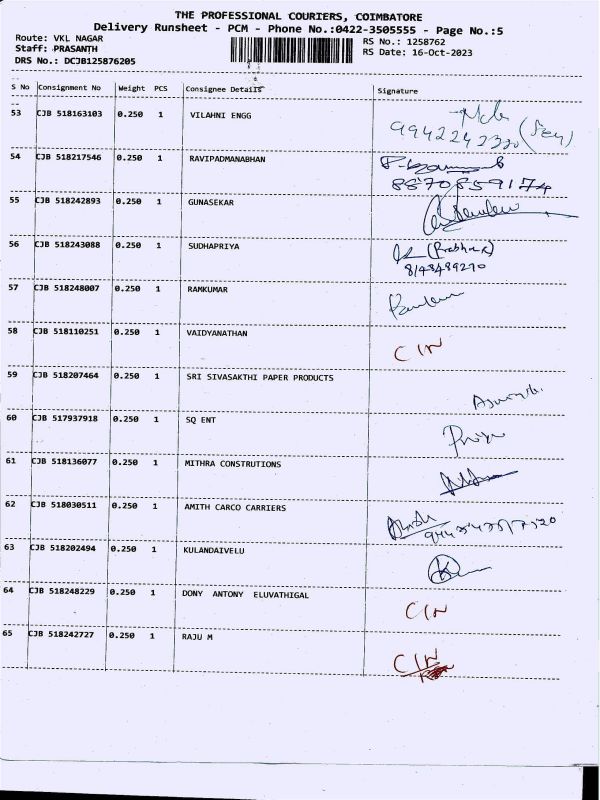 THE PROFESSIONAL COURIERS, COIMBATORE
Delivery Runsheet - PCM - Phone No.:0422-3505555 - Page No.:5
Route: VKL NAGAR
RS No.: 1258762
Staff: PRASANTH
RS Date: 16-Oct-2023
DRS No.: DCJB125876205
S No Consignment No Weight PCS Consignee Details Signature
53 CJB 518163103 0.250 1 VILAHNI ENGG
54 CJB 518217546 0.250 1 RAVIPADMANABHAN
8870859174
55 CJB 518242893 0.250 1 GUNASEKAR
56 CJB 518243088 0.250 1 SUDHAPRIYA
8148489270
57 CJB 518248007 0.250 1 RAMKUMAR
58 CJB 518110251 0.250 1 VAIDYANATHAN
CIN
59 CJB 518207464 0.250 1 SRI SIVASAKTHI PAPER PRODUCTS
60 CJB 517937918 0.250 1 SQ ENT
Priya
61 CJB 518136077 0.250 1 MITHRA CONSTRUTIONS
62 CJB 518030511 0.250 1 AMITH CARCO CARRIERS
63 CJB 518202494 0.250 1 KULANDAIVELU
64 CJB 518248229 0.250 1 DONY ANTONY ELUVATHIGAL
CIN
65 CJB 518242727 0.250 1 RAJU M
CIN